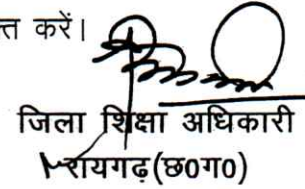 त करें।
जिला शिक्षा अधिकारी
रायगढ़(छ0ग0)